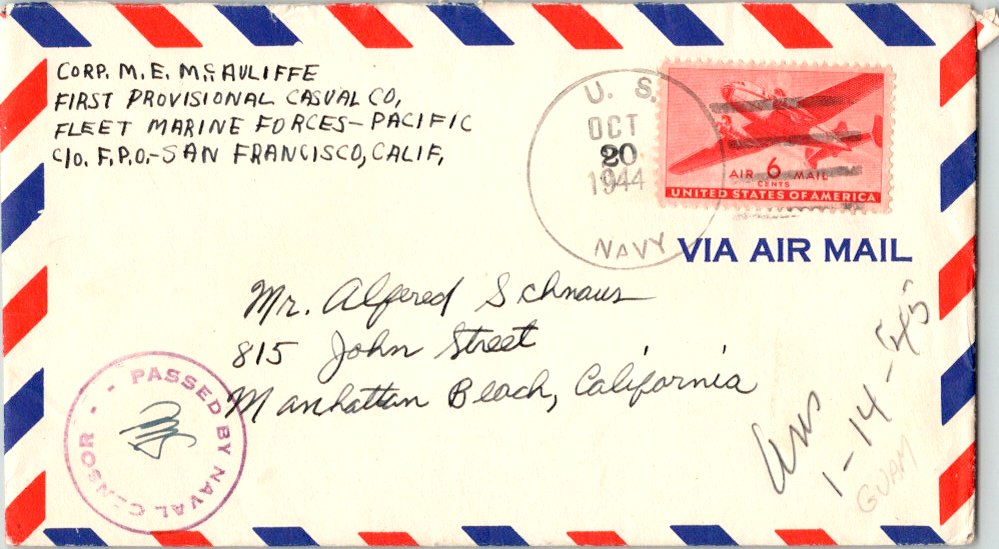 CORP. M. E. McAULIFFE
FIRST PROVISIONAL CASUAL CO,
FLEET MARINE FORCES-PACIFIC
C/O. F.P.O.-SAN FRANCISCO, CALIF,
U. S.
OCT
20
1944
NAVY
AIR 6 MAIL
CENTS
UNITED STATES OF AMERICA
VIA AIR MAIL
Mr. Alfred Schnaus
815 John Street
Manhattan Beach, California
PASSED BY NAVAL CENSOR
Ans
1-14-45
GUAM